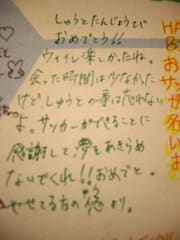 しゅうとたんじょうび
おめでとう!!
ウイイレ楽しかったね。
会った時間は少なかった
けど、しゅうとの事は忘れない
よ。サッカーができることに
感謝して、夢をあきらめ
ないでくれ!!おめでと。
やせてる方の悠より。
HA
B
おサッカー